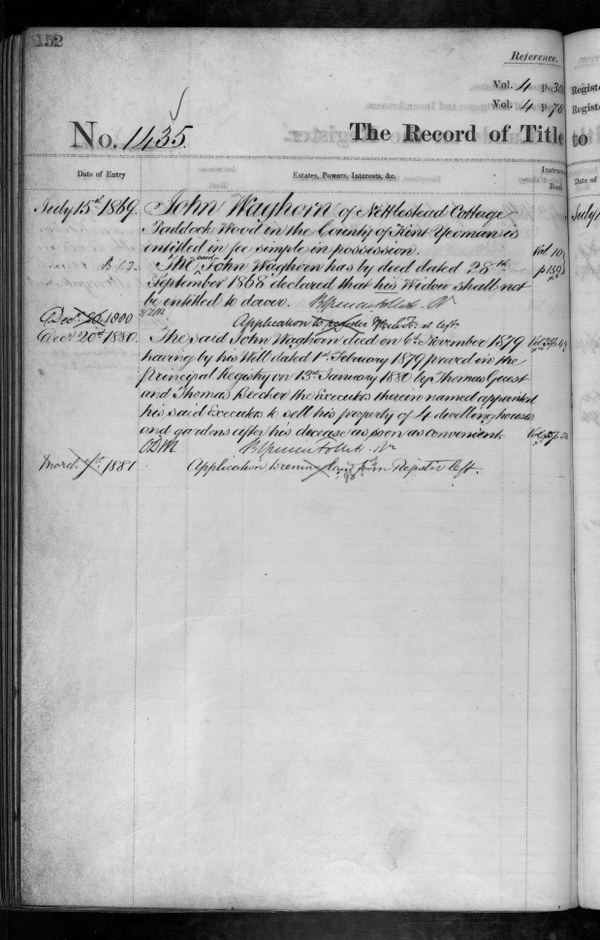 152
Reference.
Vol. 4 p. 30
Vol. 4 p. 78
No. 1435. The Record of Title to
Date of Entry Estates, Powers, Interests, &c.
July 15th 1869. John Waghorn of Nettlestead Cottage
Paddock Wood in the County of Kent Yeoman is
entitled in fee simple in possession. Vol 10
The said John Waghorn has by deed dated 28th p 159
September 1868 declared that his Widow shall not
be entitled to dower.
Application to register left
Decr. 20th 1880. The said John Waghorn died on 6th November 1879
having by his Will dated 1st February 1879 proved in the
Principal Registry on 13th January 1880 by Thomas Guest
and Thomas the Executors therein named appointed
his said Executors to sell his property of 4 dwellinghouses
and gardens after his decease as soon as convenient
March 1881 Application to remove from Register left.
Registe
Registe
Date of
July 1